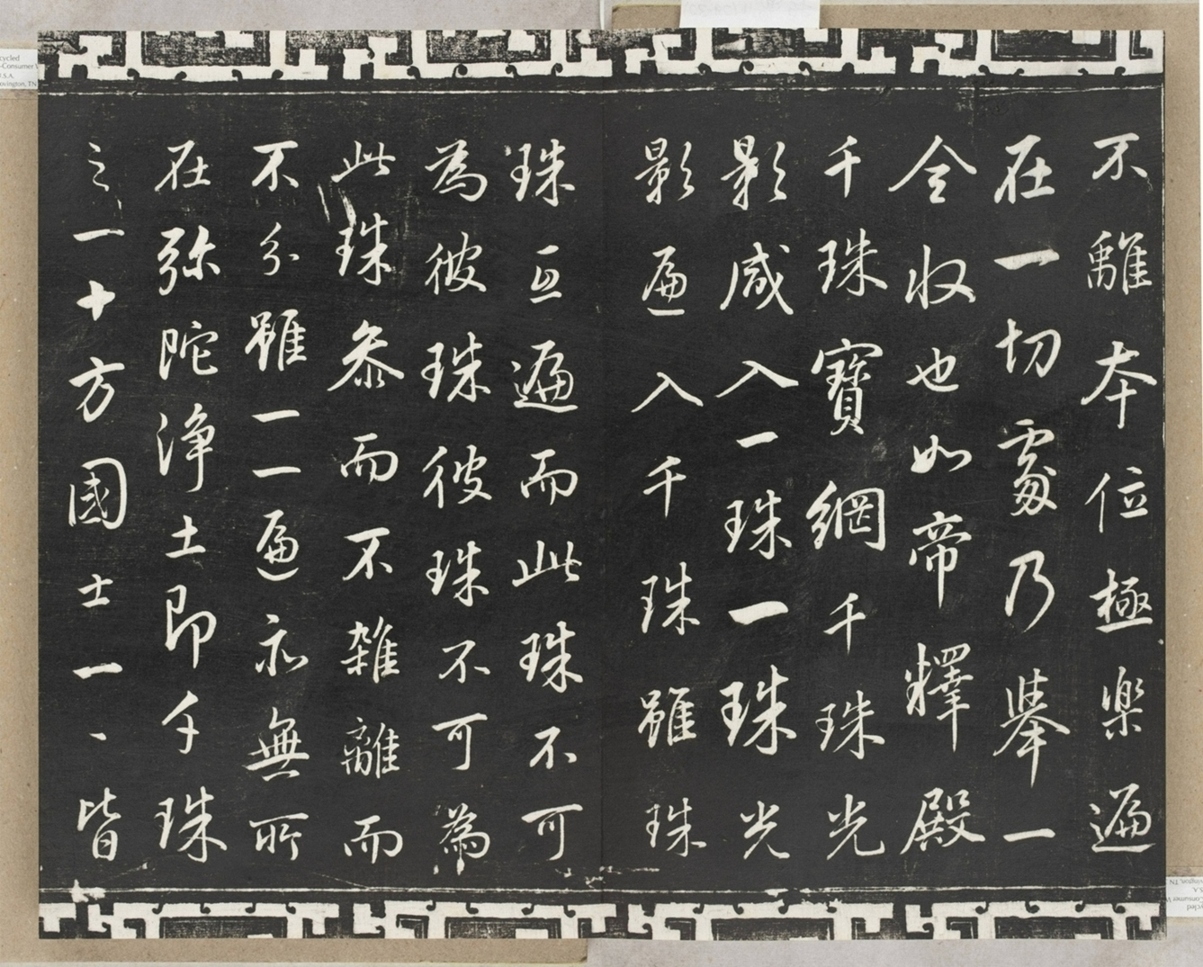 不離本位極樂遍
在一切處乃舉一
全收也如帝釋殿
千珠寶網千珠光
影咸入一珠一珠光
影匝入千珠雖珠
珠互遍而此珠不可
為彼珠彼珠不可為
此珠叅而不雜離而
不分雖一一匝亦無所
在弥陀淨土即千珠
之一十方國土一、皆